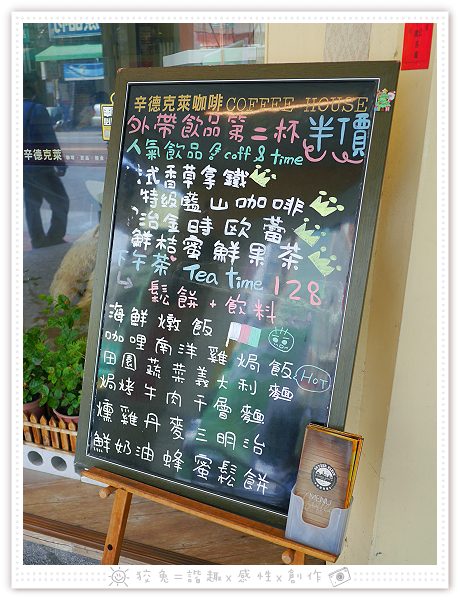 辛德克萊咖啡 COFFEE HOUSE
外帶飲品第二杯半價
人氣飲品 & coff & time
式香草拿鐵
特級藍山咖啡
冶金時歐蕾
鮮桔蜜鮮果茶
下午茶 Tea time 128
鬆餅+飲料
海鮮燉飯
咖哩南洋雞焗飯 Hot
田園蔬菜義大利麵
焗烤牛肉千層麵
燻雞丹麥三明治
鮮奶油蜂蜜鬆餅
辛德克萊
MENU
狡兔=諧趣x感性x創作